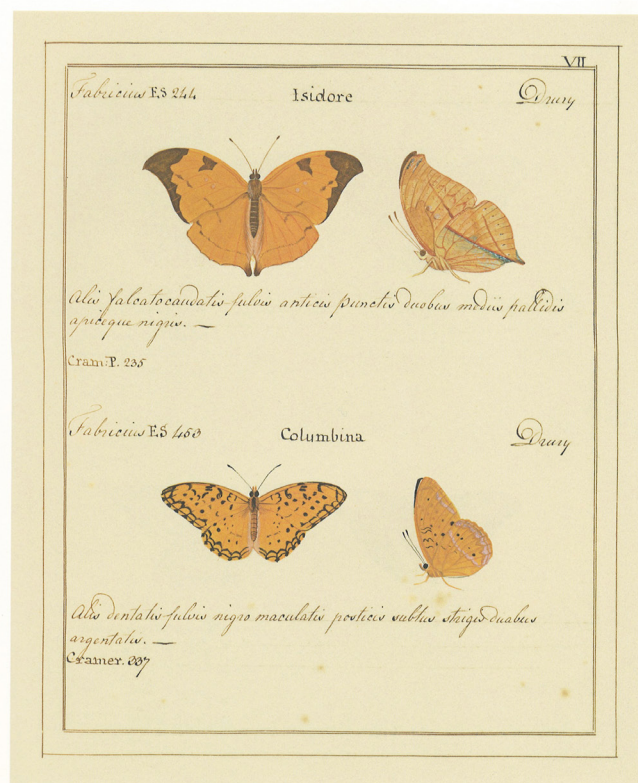 VII
Fabricius E.S 244 Isidore Drury
Alis falcatocaudatis fulvis anticis punctis duobus mediis pallidis
apiceque nigris. —
Cram: P. 235
Fabricius E.S 453 Columbina Drury
Alis dentatis fulvis nigro maculatis posticis subtus strigis duabus
argentatis. —
Cramer. 237